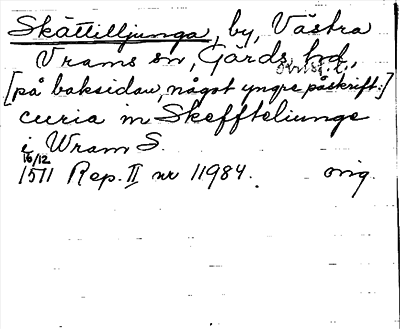 Skättilljunga, by, Västra
Vrams sn, Gärds hd,
[på baksidan, något yngre påskrift:]
curia in Skeffteliunge
i Wram S.
16/12
1511 Rep. II nr 11984. orig.